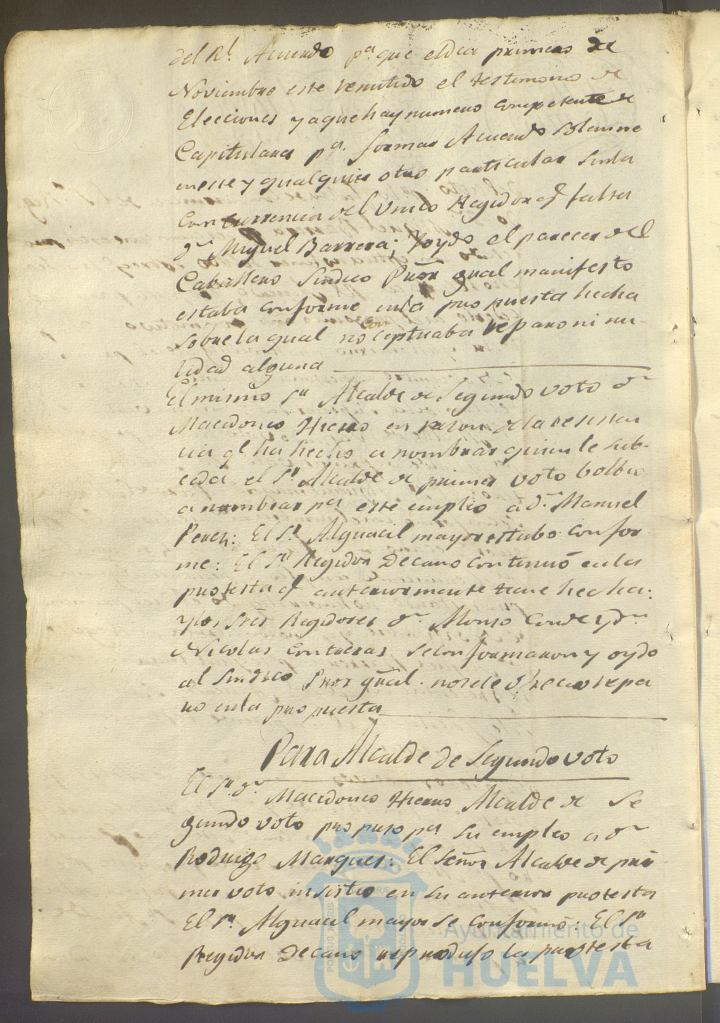 del Rl. Acuerdo pa. que el dia primero de
Noviembre este remitido el testimonio de
Elecciones y aque hay numero competente de
Capitulares pa. formar Acuerdo Solemne
en este y qualquier otro particular sin la
Concurrencia del Unico Regidor q. falta
Dn. Miguel Barrera; Y oydo el parecer del
Caballero Sindico Pror. gral manifesto
estaba conforme enla propuesta hecha
sobre la qual no ceptuaba reparo ni nu-
lidad alguna
El mismo Sr. Alcalde de Segundo voto Dn
Macedonio Hierro en razon de la resisten
cia q. ha hecho a nombrar quien le sub-
ceda el Sr. Alcalde de primer voto bolbio
a nombrar pa. este empleo a Dn. Manuel
Perez: El Sr. Alguacil mayor estubo confor-
me: El Sr. Regidor Decano continuó en la
protesta q. anteriormente tiene hecha:
y los Sres Regidores Dn. Alonso Conde y Dn.
Nicolas Contreras se conformaron y oydo
al Sindico Pror gral. no se le ofrecio repa
ro enla propuesta
Para Alcalde de Segundo voto
El Sr. Dn. Macedonio Hierro Alcalde de Se
gundo voto propuso pa. su empleo a Dn
Rodrigo Marquez: El Señor Alcalde de pri
mer voto insistio en su anterior protesta
El Sr. Alguacil mayor se conformó: El Sr.
Regidor Decano reprodujo la protesta
Ayuntamiento de
HUELVA